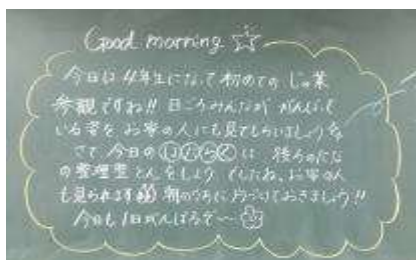 Good morning ☆
今日は4年生になって初めてのじゅ業
参観ですね!! 日ごろみんなが がんばって
いる姿を お家の人にも見てもらいましょうね
さて 今日の は 後ろのたな
の整理整とんをしよう でしたね。お家の人
も見られます 朝のうちに片づけておきましょう!!
今日も1日がんばるぞ〜